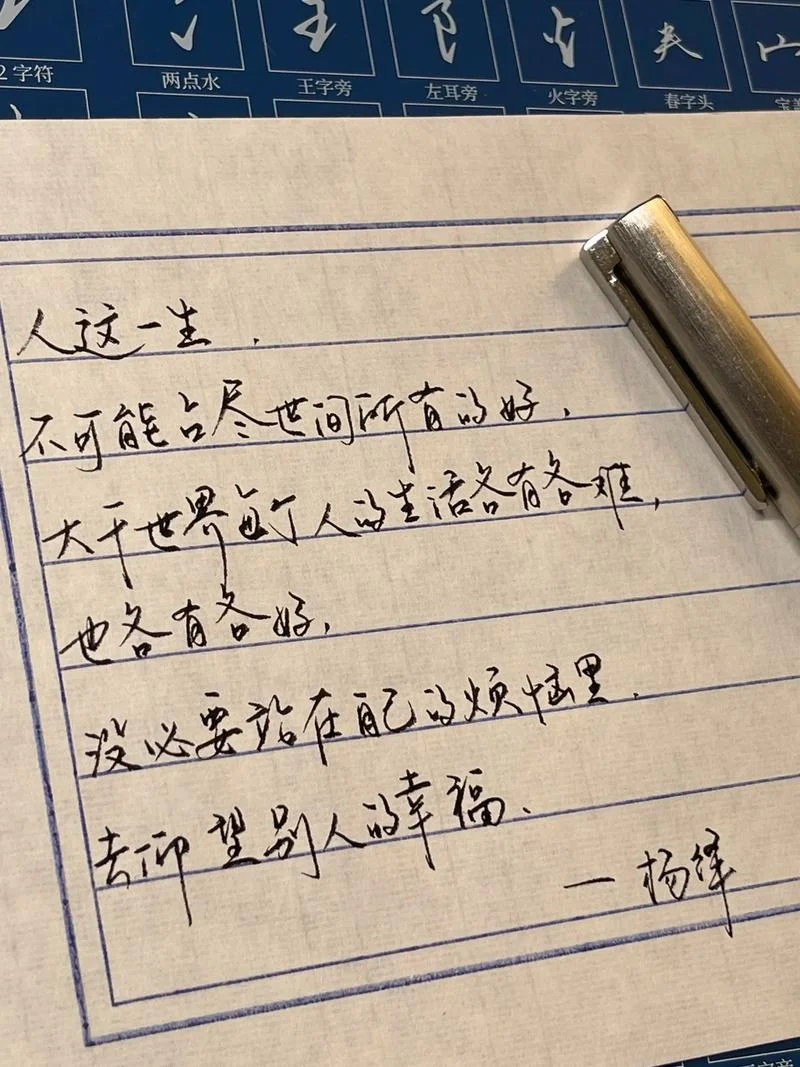 2字符 两点水 王字旁 左耳旁 火字旁 春字头
人这一生.
不可能占尽世间所有的好,
大千世界每个人的生活各有各难,
也各有各好,
没必要站在自己的烦恼里.
去仰望别人的幸福.
一 杨绛